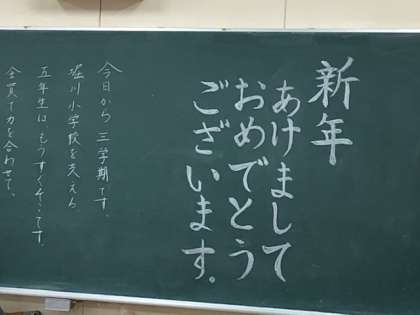 新年
あけまして
おめでとう
ございます。
今日から三学期です。
堀川小学校を支える
五年生は もうすぐそこです。
全員で力を合わせて、